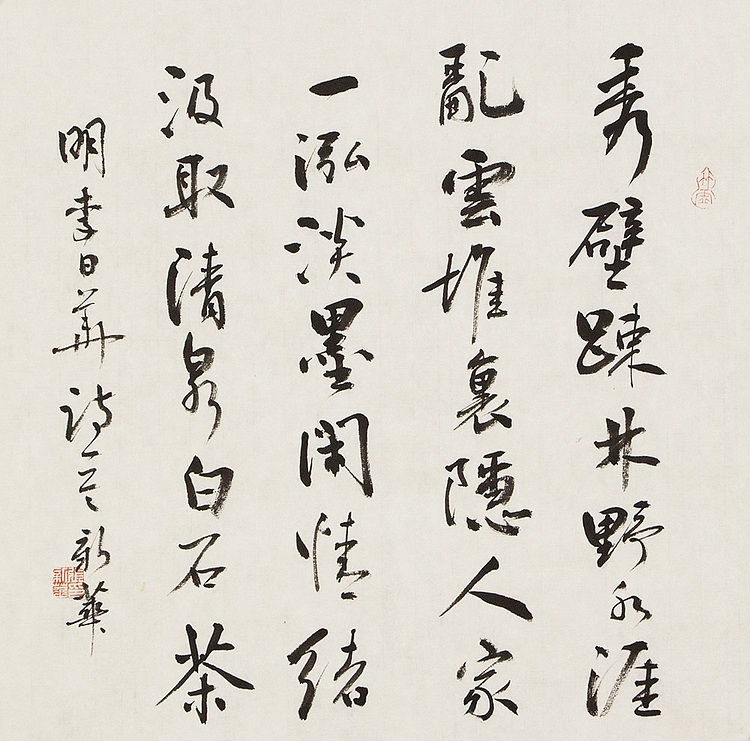 秀壁踈林野水涯
亂雲堆裏隱人家
一泓淡墨閑情緒
汲取清泉白石茶
明李日華詩一首 新華